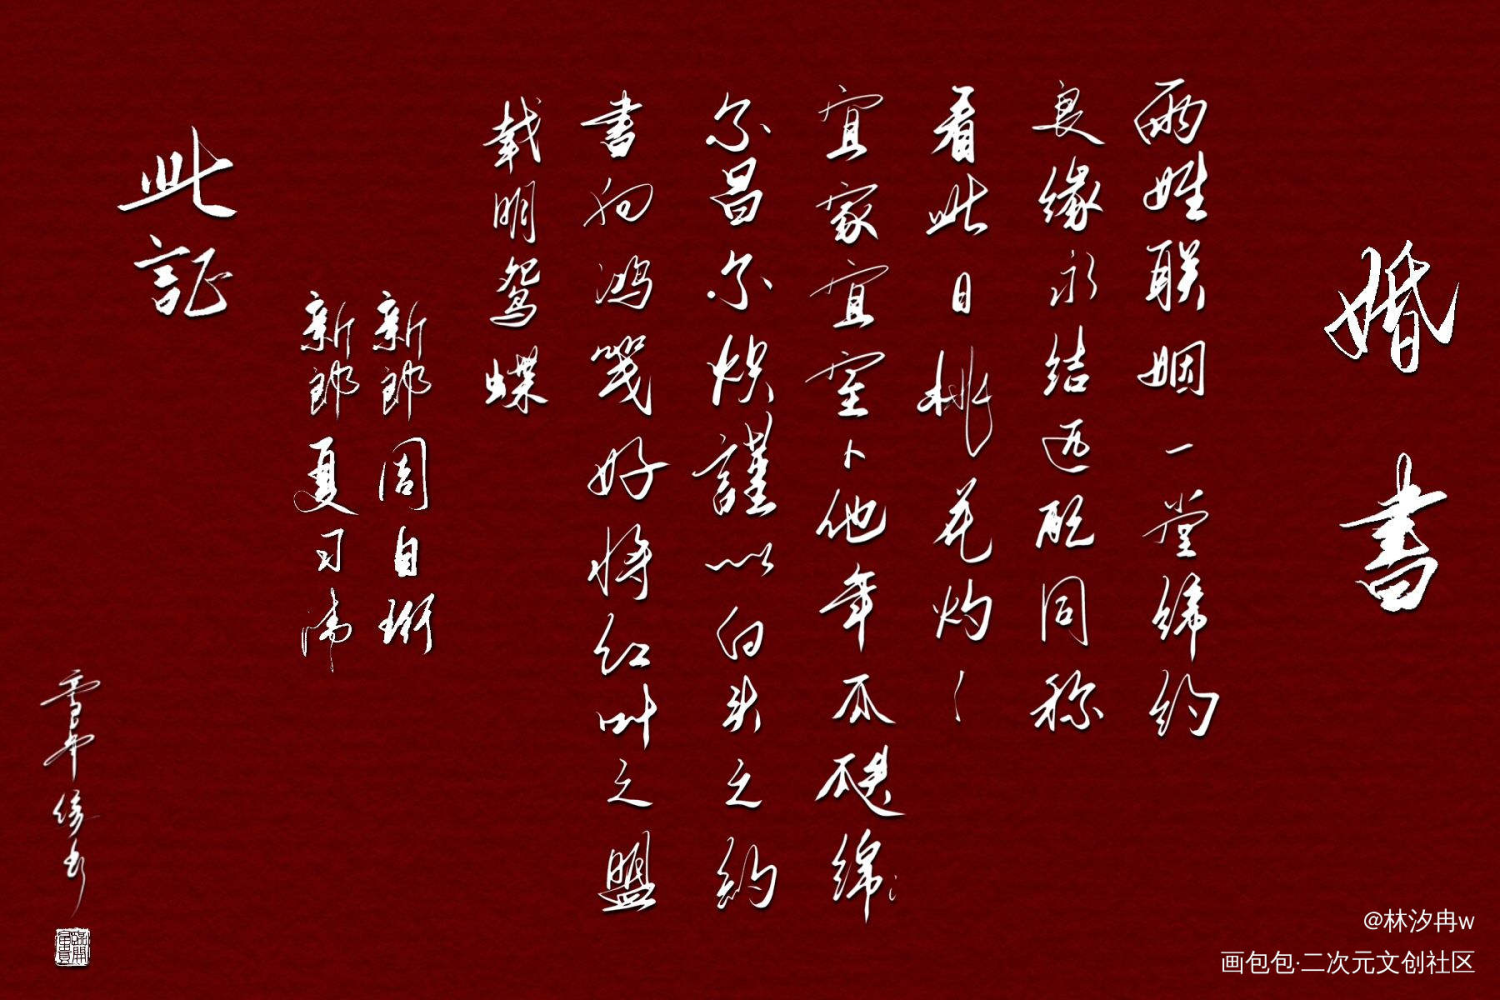 婚書
兩姓联姻一堂缔约
良缘永结匹配同称
看此日桃花灼〻
宜家宜室卜他年瓜瓞绵〻
尔昌尔炽謹以白头之约
書向鸿笺好将红叶之盟
载明鸳蝶
新郎周自珩
新郎夏习清
此証
@林汐冉w
画包包·二次元文创社区